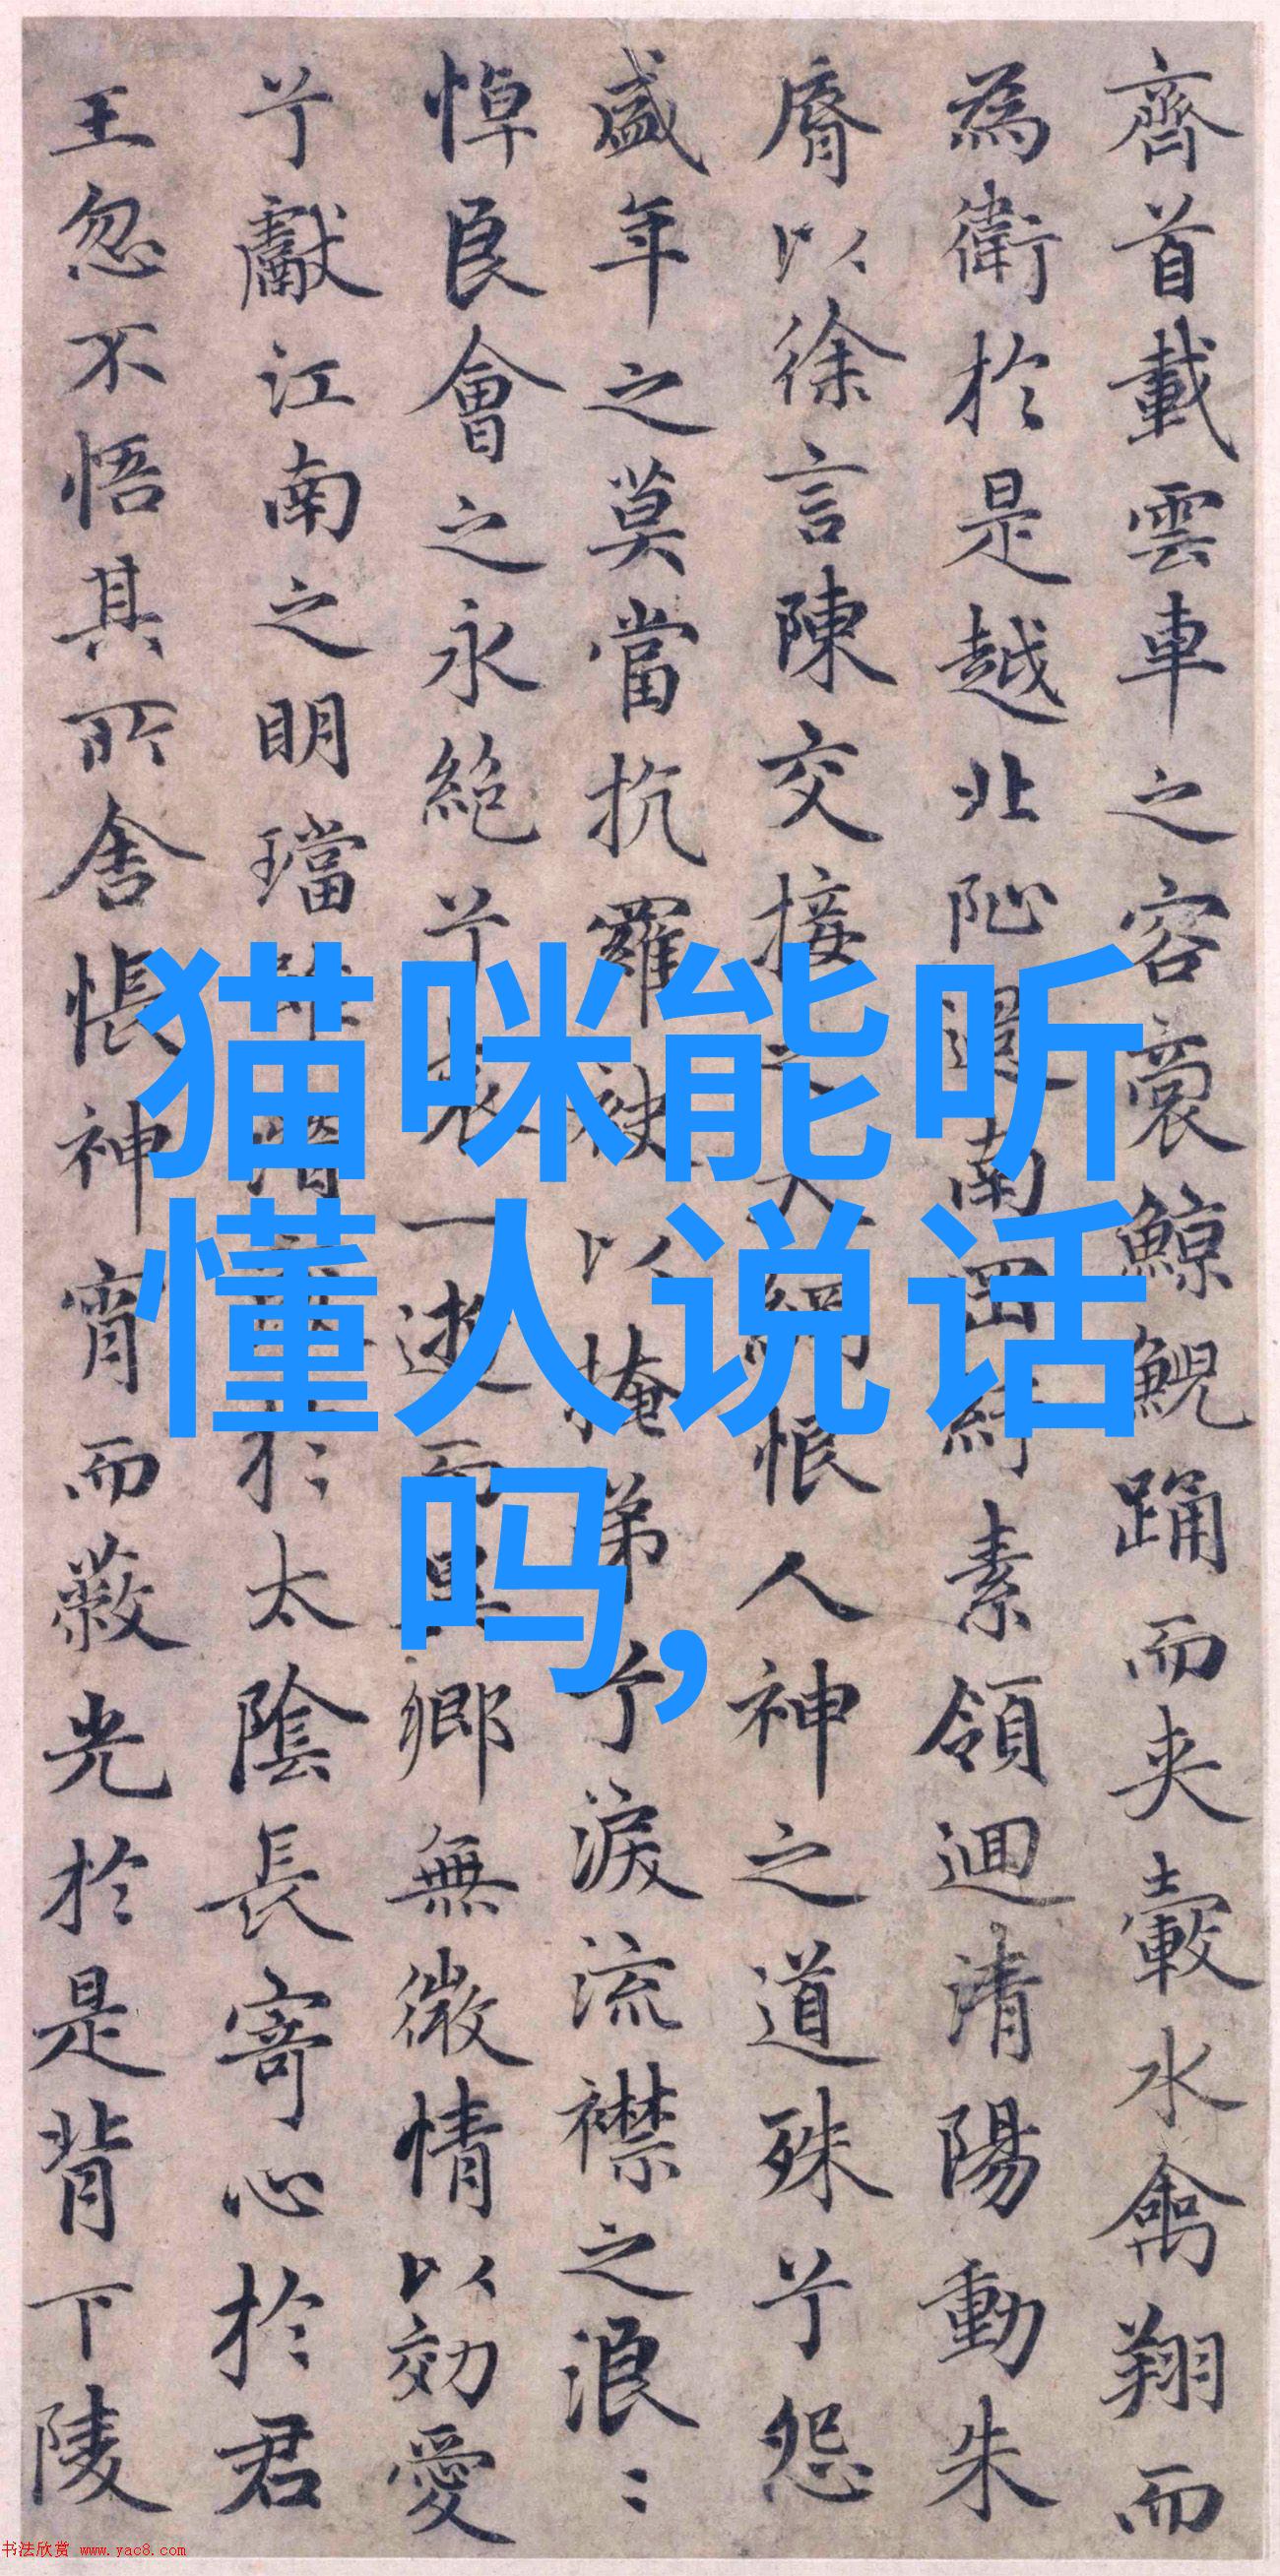 齊首載雲車之容裔鯨鯢踊而夾轂水禽翔而
為衛於是越北沚過南岡紆素領迴清陽動朱
脣以徐言陳交接之大綱恨人神之道殊兮怨
盛年之莫當抗羅袂以掩涕兮淚流襟之浪〻
悼良會之永絕兮哀一逝而異鄉無微情以効愛
兮獻江南之明璫雖潛處於太陰長寄心於君
王忽不悟其所舍悵神宵而蔽光於是背下陵
猫咪能听
懂人说话
吗,
书法欣赏 www.yac8.com